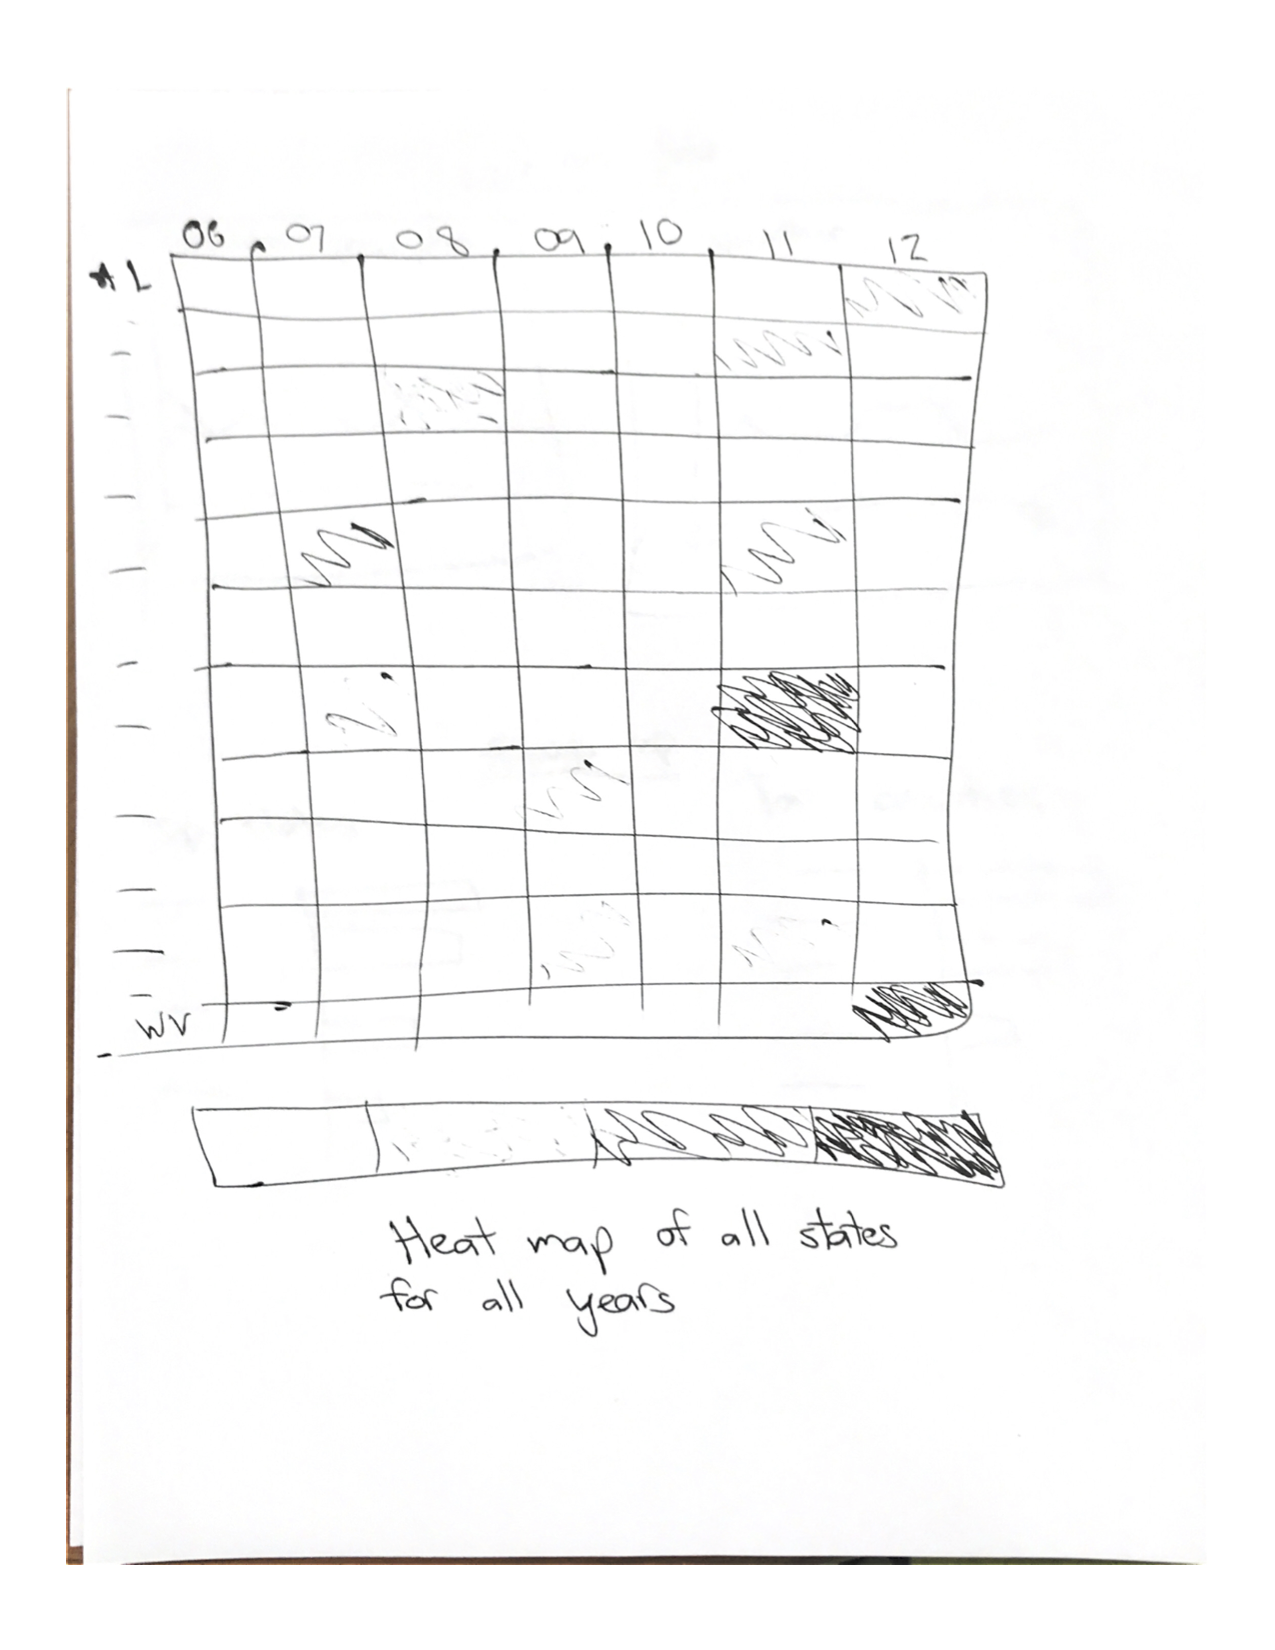 06 07 08 09 10 11 12
AL
WV
Heat map of all states
for all years